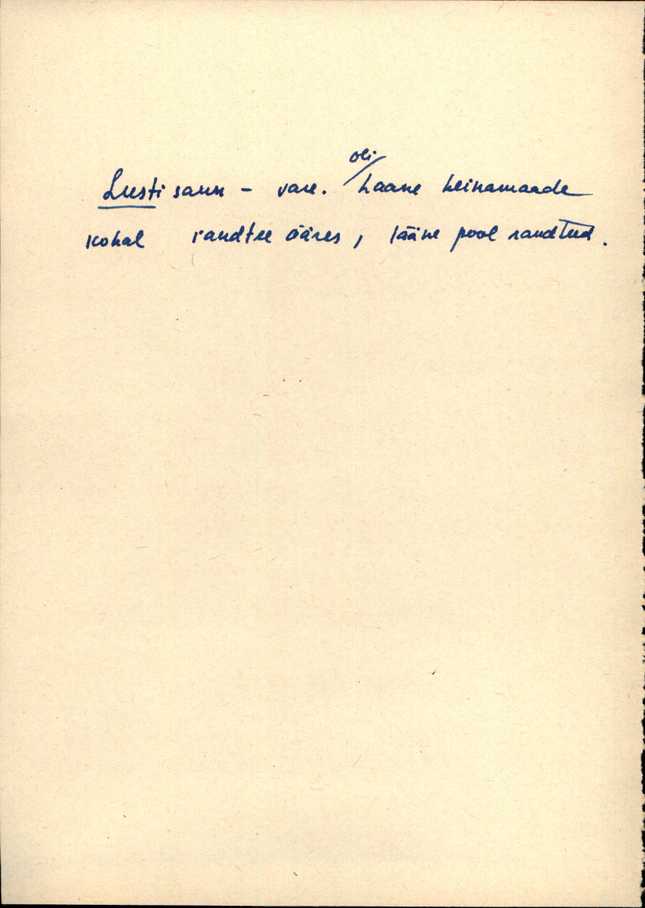 oli
Lusti saun - vare. Haane heinamaade
kohal raudtee ääres, lääne pool raudteed.